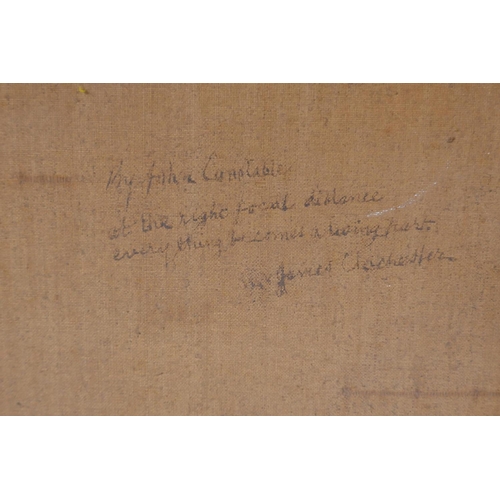 By John Constable
at the right focal distance
everything becomes a living part.
James Chichester